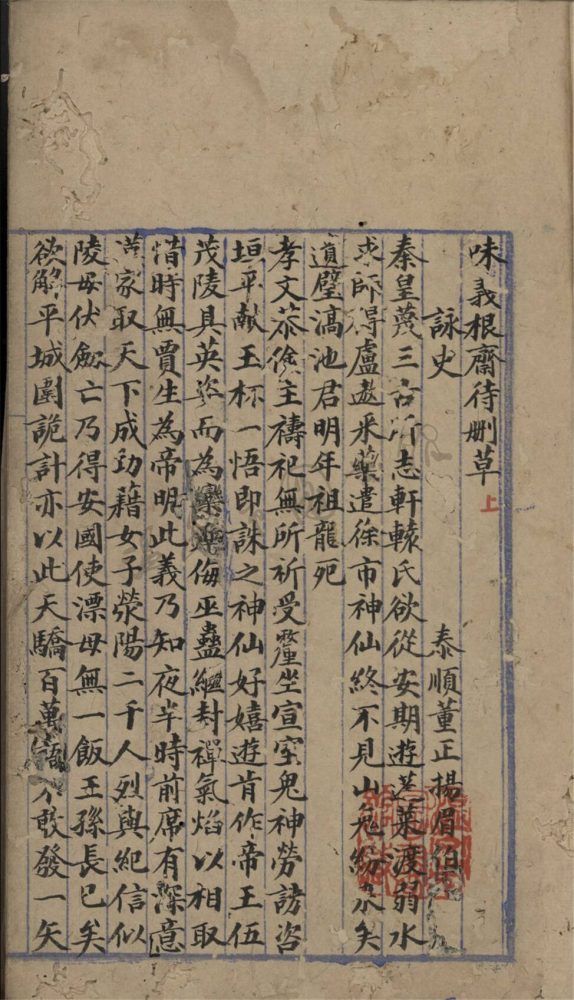 味義根齋待刪草 上
詠史 泰順董正揚眉伯
秦皇蔑三古所志軒轅氏欲從安期遊蓬萊渡弱水
求師得盧遨采藥遣徐市神仙終不見山鬼紛來矣
遺璧滈池君明年祖龍死
孝文恭儉主禱祀無所祈受釐坐宣室鬼神勞訪咨
垣平献玉杯一悟即誅之神仙好嬉遊肯作帝王伍
茂陵具英姿而為欒侮巫蠱繼封禪氣焰以相取
惜時無賈生為帝明此義乃知夜半時前席有深意
漢家取天下成功藉女子滎陽二千人烈與紀信似
陵母伏劍亡乃得安國使漂母無一飯王孫長已矣
欲解平城圍詭計亦以此天驕百萬不敢發一矢